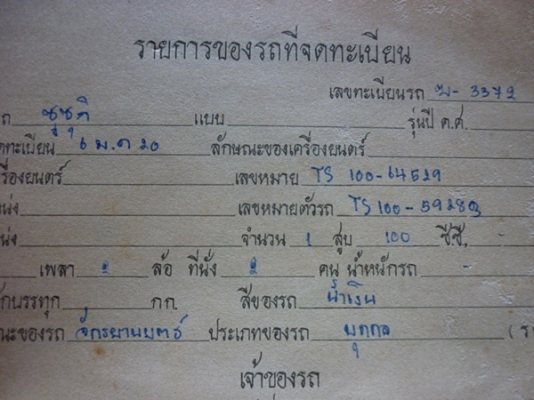 รายการของรถที่จดทะเบียน
เลขทะเบียนรถ ฆ-3372
ถ ซูซูกิ แบบ รุ่นปี ค.ศ.
ดทะเบียน 6 ม.ค 20 ลักษณะของเครื่องยนตร์
รื่องยนตร์ เลขหมาย TS 100-64529
น่ง เลขหมายตัวรถ TS 100-59283
น่ง จำนวน 1 สูบ 100 ซีซี.
เพลา 2 ล้อ ที่นั่ง 2 คน น้ำหนักรถ
ักบรรทุก กก. สีของรถ น้ำเงิน
ณะของรถ จักรยานยนตร์ ประเภทของรถ บุคคล (ร
เจ้าของรถ